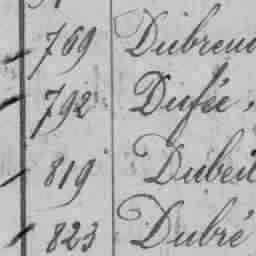 769 Dubreui
792 Dufée,
819 Dubeil
823 Dubré